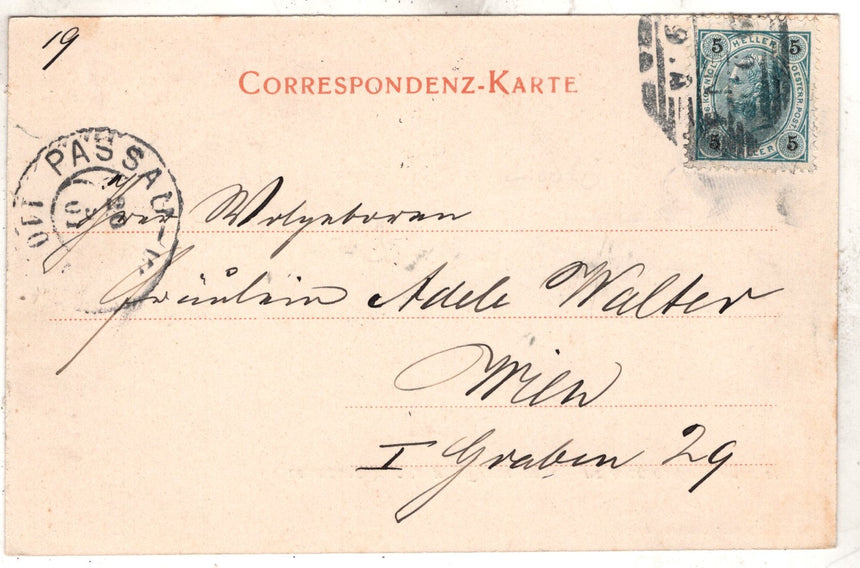 19
CORRESPONDENZ-KARTE
5 HELLER 5
OESTERR. POST
5 HELLER 5
PASSAU
Ihrer Wolgeboren
Fräulein Adele Walter
Wien
I Graben 29